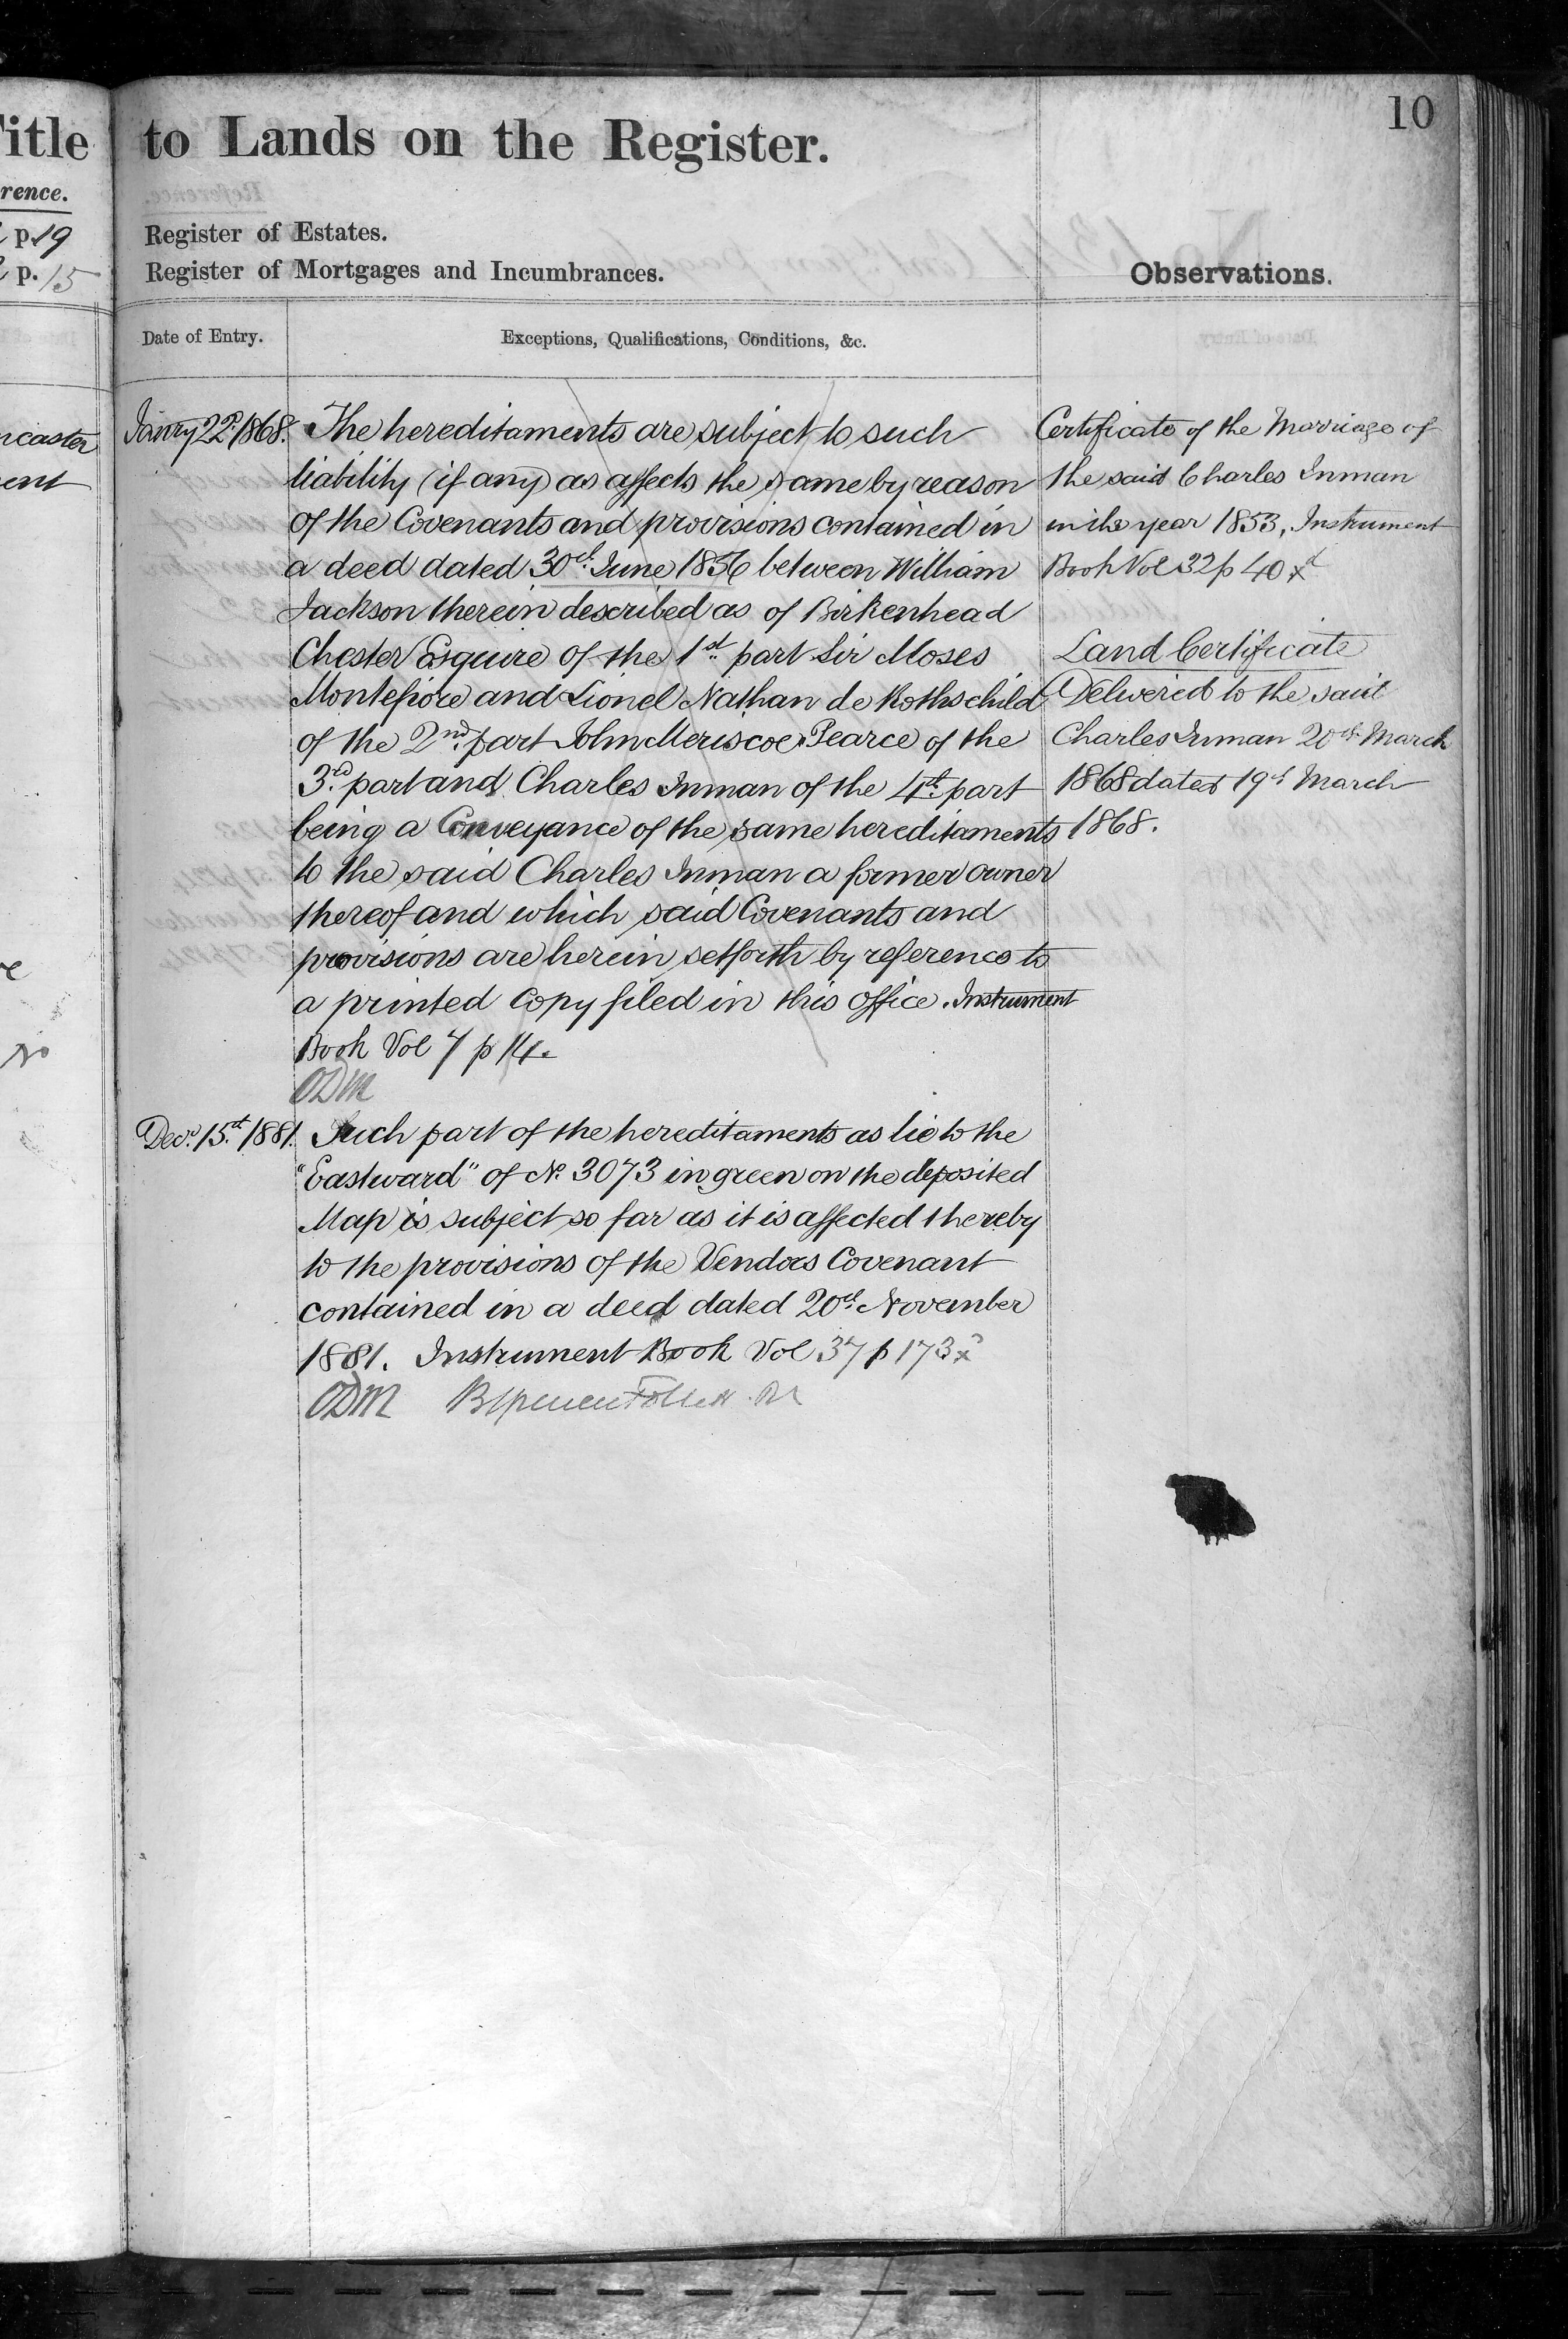 10
to Lands on the Register.
Register of Estates.
Register of Mortgages and Incumbrances.
Observations.
Date of Entry.
Exceptions, Qualifications, Conditions, &c.
rence.
p. 19
p. 15
ncaster
ent
Janry 22d. 1868. The hereditaments are subject to such
liability (if any) as affects the same by reason
of the Covenants and provisions contained in
a deed dated 30th June 1856 between William
Jackson therein described as of Birkenhead
Chester Esquire of the 1st part Sir Moses
Montefiore and Lionel Nathan de Rothschild
of the 2nd part John Meriscoe Pearce of the
3rd part and Charles Inman of the 4th part
being a Conveyance of the same hereditaments
to the said Charles Inman a former owner
thereof and which said Covenants and
provisions are herein setforth by reference to
a printed Copy filed in this office. Instrument
Book Vol 7 p 14.
ODM
Decr. 15st 1881. Such part of the hereditaments as lie to the
"Eastward" of No. 3073 in green on the deposited
Map is subject so far as it is affected thereby
to the provisions of the Vendors Covenant
contained in a deed dated 20th November
1881. Instrument Book Vol 37 p 173 x
ODM
Certificate of the Marriage of
the said Charles Inman
in the year 1853, Instrument
Book Vol 32 p 40 x
Land Certificate
Delivered to the said
Charles Inman 20th March
1868 dated 19th March
1868.